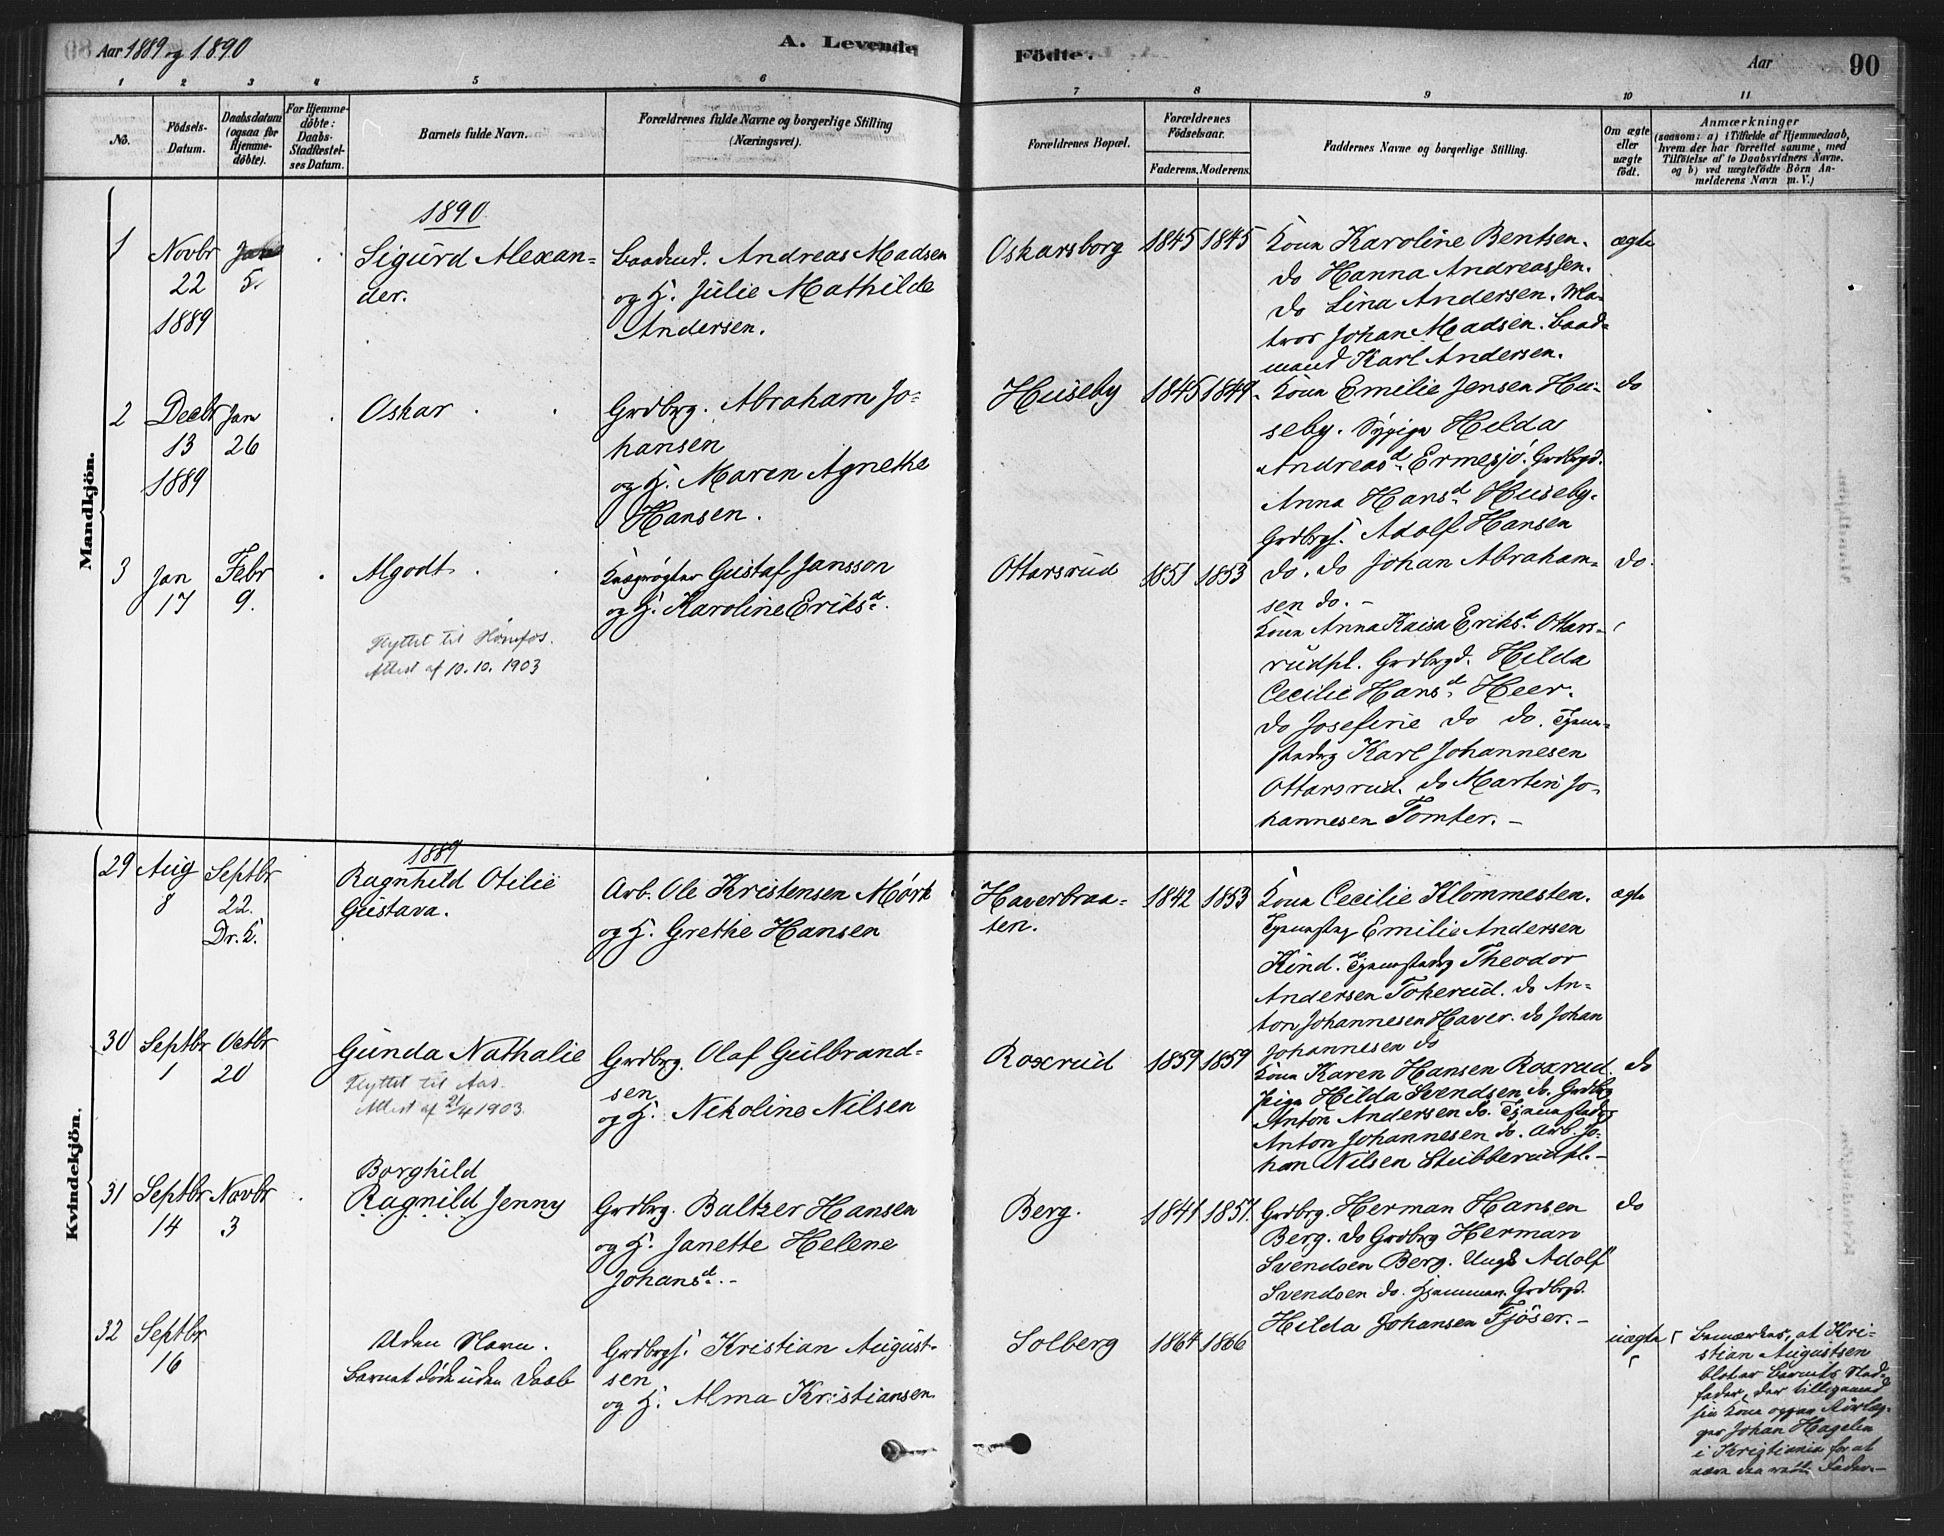 Aar 1889 og 1890
A. Levende Födte.
Aar 90
1 2 3 4 5 6 7 8 9 10 11
No.
Födsels-Datum.
Daabsdatum (ogsaa for Hjemme-döbte).
For Hjemme-döbte: Daabs-Stadfæstel-ses Datum.
Barnets fulde Navn.
Forældrenes fulde Navne og borgerlige Stilling (Næringsvei).
Forældrenes Bopæl.
Forældrenes Födselsaar.
Faderens. Moderens.
Faddernes Navne og borgerlige Stilling.
Om ægte eller uægte födt.
Anmærkninger
(saasom: a) i Tilfælde af Hjemmedaab,
hvem der har forrettet samme, med
Tilföielse af to Daabsvidners Navne.
og b) ved uægtefödte Börn An-
melderens Navn m. V.)
Mandkjön.
1890
1
Novbr
22
1889
5.
Sigurd Alexan-
der.
Baadmd. Andreas Madsen
og H. Julie Mathilde
Andersen.
Oskarsborg
1845 1845
Kona Karoline Bentsen.
do Hanna Andreassen.
do Lina Andersen. Ma-
tros Johan Madsen. Baad-
mand Karl Andersen.
ægte
2
Decbr
13
1889
Jan
26
Oskar
Grdbrg. Abraham Jo-
hansen
og H. Maren Agnethe
Hansen.
Huseby
1845 1849
Kona Emilie Jensen Hu-
seby. Sypige Hilda
Andreasd. Ermesjö. Grdbrgd.
Anna Hansd. Huseby.
Grdbrgs. Adolf Hansen
do. do Johan Abraham-
sen do. –
do
3
Jan
17
Febr
9.
Algodt
Kvægrögter Gustaf Jansson
og H. Karoline Eriksd.
Flyttet til Hønefos.
Attest af 10.10.1903
Ottarsrud
1851 1853
Kona Anna Kaisa Eriksd. Ottars-
rudpl. Grdbrgd. Hilda
Cecilie Hansd. Heer.
do Josefine do do. Tjene-
stedrg Karl Johannesen
Ottarsrud. do Martin Jo-
hannesen Tomter. –
do.
Kvindekjön.
1889
29
Aug
8
Septbr
22.
Dr. K.
Ragnhild Otilie
Gustava.
Arb. Ole Kristensen Mørk
og H. Grethe Hansen
Haverbraa-
ten.
1842 1853
Kona Cecilie Klommesten.
Tjenestpg Emilie Andersen
Kind. Tjenestedrg Theodor
Andersen Tokerud. do An-
ton Johannesen Haver. do Johan
Johannesen do
ægte
30
Septbr
1
Octbr
20
Gunda Nathalie
Flyttet til Aas.
Attest af 21/4 1903.
Grdbrg. Olaf Gulbrand-
sen
og H. Nikoline Nilsen
Roxrud
1859 1859
Kona Karen Hansen Roxrud.
Pige Hilda Svendsen do. Grdbrg
Anton Andersen do. Tjenestedrg
Anton Johannesen do. Arb. Jo-
han Nilsen Stubberudpl. –
do
31
Septbr
14
Novbr
3
Borghild
Ragnild Jenny
Grdbrg. Baltzer Hansen
og H. Janette Helene
Johansd. –
Berg.
1841 1857.
Grdbrg. Herman Hansen
Berg. do Grdbrg Herman
Svendsen Berg. Ungk Adolf
Svendsen do. Hjemmev. Grdbrgd.
Hilda Johansen Fjöser. –
do
32
Septbr
16
Uden Navn.
Barnet døde uden Daab
Grdbrgs. Kristian August-
sen
og H. Alma Kristiansen.
Solberg
1864 1866
uægte
Bemærkes, at Kri-
stian Augustsen
blot er Barnets Sted-
fader, der tilligemed
sin Kone opgav Rörlæg-
ger Johan Hagelin
i Kristiania for at
være den rette Fader. –